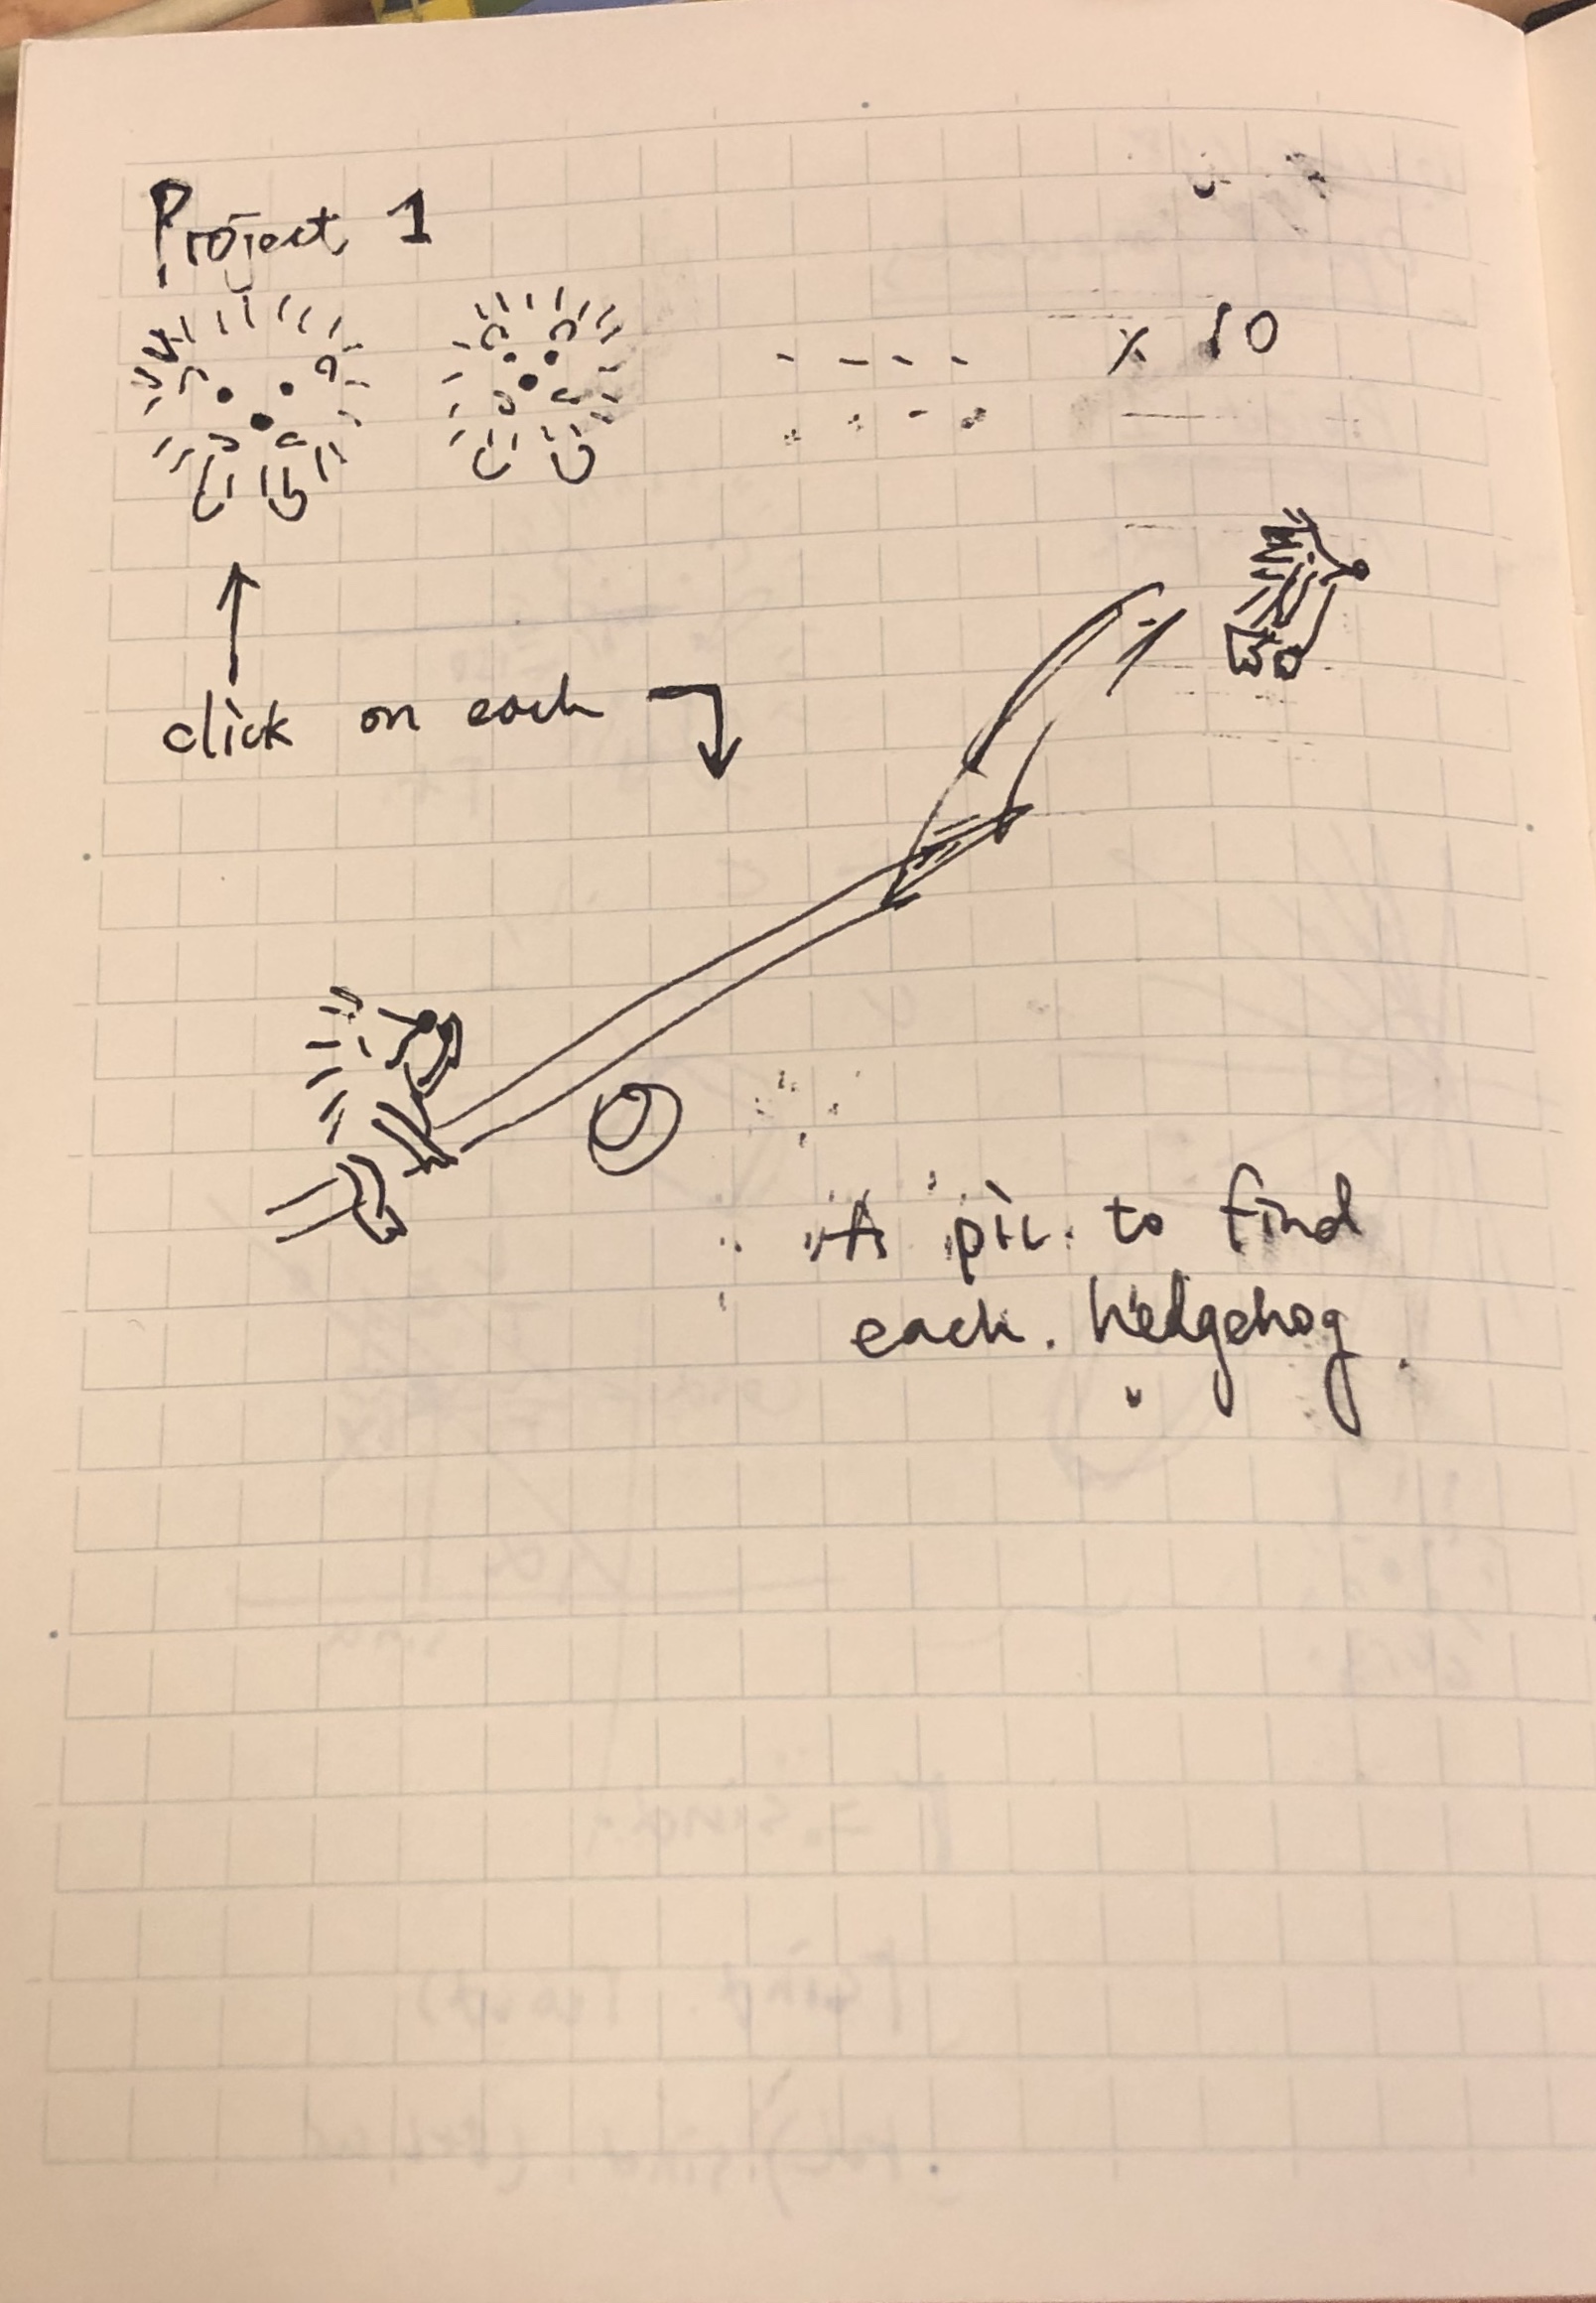 Project 1
x 10
click on each
A pic. to find
each. hedgehog.